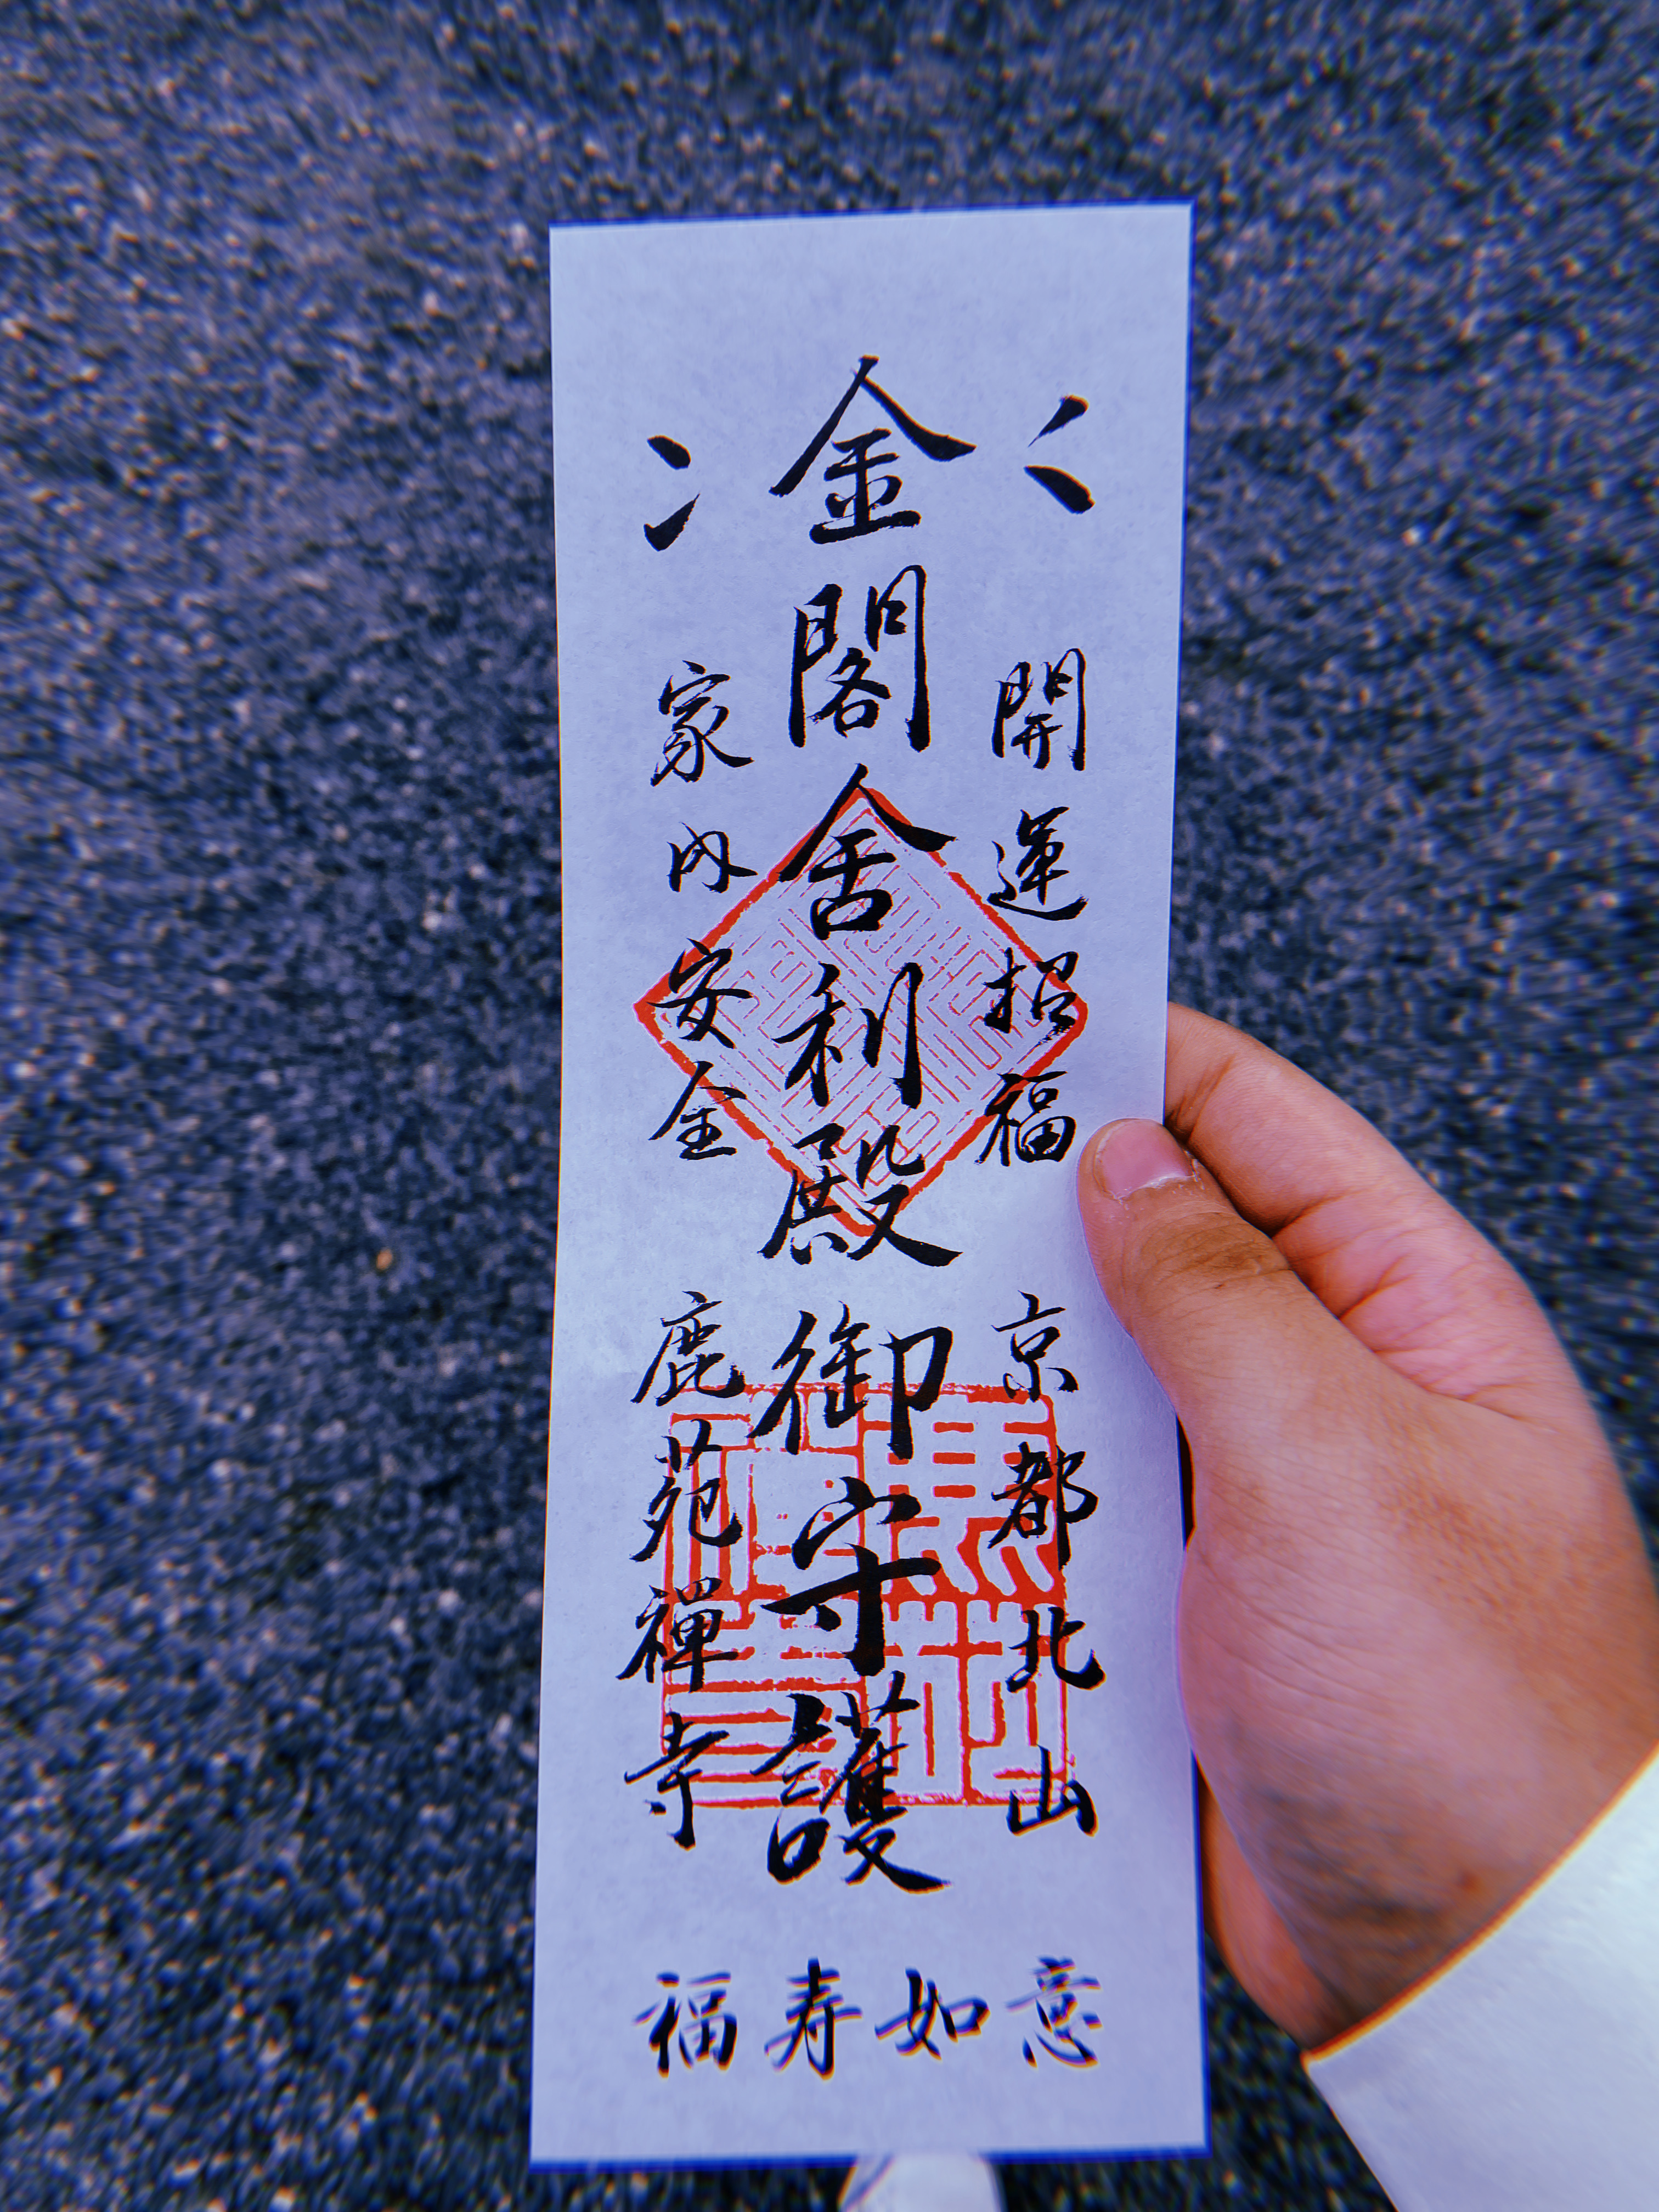 開運招福
京都北山
金閣舎利殿
御守護
家内安全
鹿苑禅寺
福寿如意